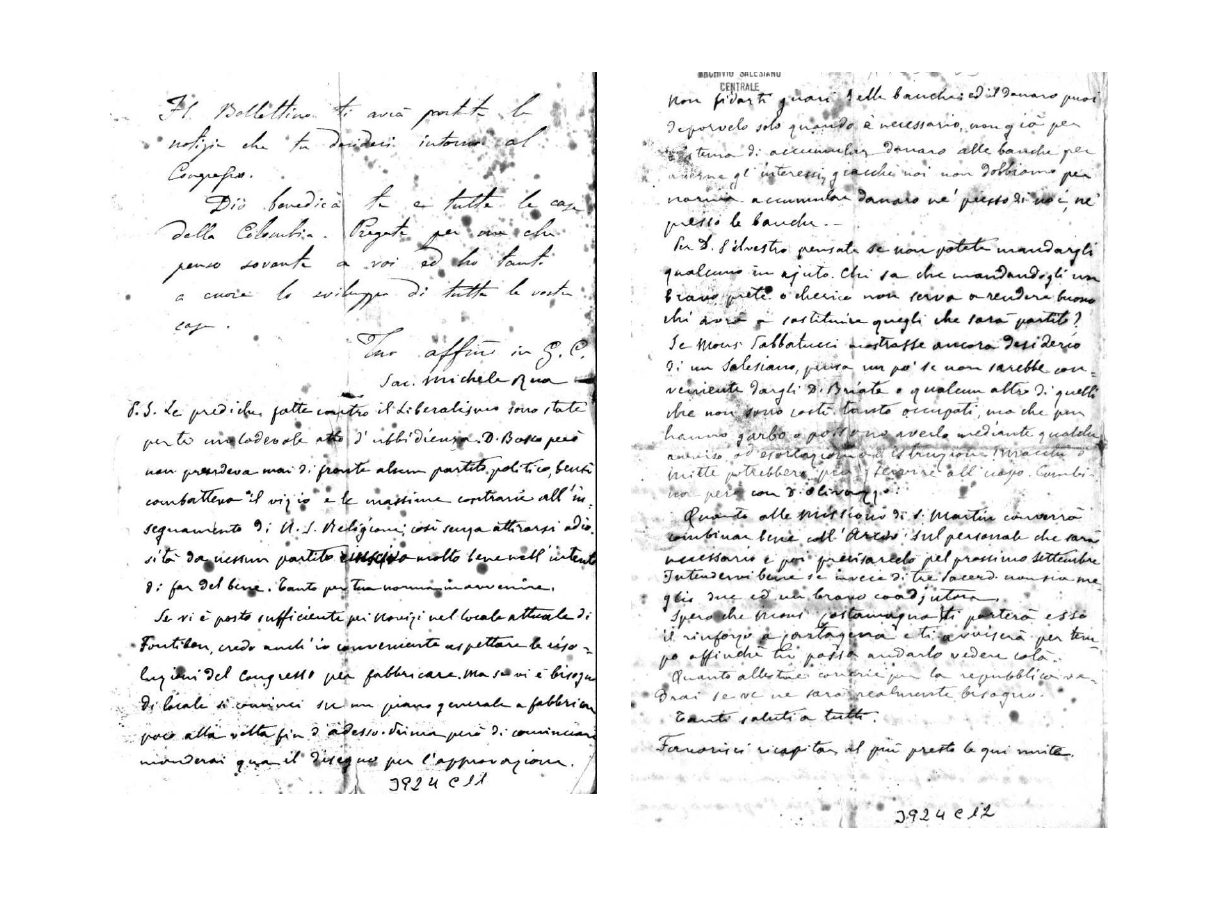 Il Bollettino ti avrà portate le
notizie che tu desideri intorno al
Congresso.
Dio benedica te e tutte le case
della Colombia. Pregate per me che
penso sovente a voi ed ho tanto
a cuore lo sviluppo di tutte le vostre
case.
Tuo affmo in G. C.
Sac. Michele Rua
P. S. Le prediche fatte contro il Liberalismo sono state
per te un lodevole atto d'ubbidienza. D. Bosco però
non prendeva mai di fronte alcun partito politico, bensì
combatteva il vizio e le massime contrarie all'in-
segnamento di N. S. Religione; così senza attirarsi odio
sità da nessun partito riusciva molto bene nell'intento
di far del bene. Tanto per tua norma in avvenire.
Se vi è posto sufficiente pei novizi nel locale attuale di
Fontibon, credo anch'io conveniente aspettare le riso-
luzioni del Congresso per fabbricare. Ma se vi è bisogno
di locale si cominci su un piano generale a fabbricar
poco alla volta fin d'adesso. Prima però di cominciare
manderai qua il disegno per l'approvazione.
3924 C 11
ARCHIVIO SALESIANO
CENTRALE
Non fidarti guari delle banche: ed il danaro puoi
deporvelo solo quando è necessario, non già per
sistema di accumular danaro alle banche per
averne gl'interessi, giacchè noi non dobbiamo per
norma accumular danaro nè presso di noi, nè
presso le banche. --
Per D. Silvestro pensate se non potete mandargli
qualcuno in ajuto. Chi sa che mandandogli un
bravo prete o cherico non serva a rendere buono
chi avrà a sostituire quegli che sarà partito?
Se Mons. Sabbatucci mostrasse ancora desiderio
di un Salesiano, pensa un po' se non sarebbe con-
veniente dargli D. Briata o qualcun altro di quelli
che non sono costì tanto occupati, ma che pur
hanno garbo o possono averlo mediante qualche
avviso od esortazione od istruzione
potrebbero servire all'uopo. Combi-
na però con D.
Quanto alle Missioni di S. Martin converrà
combinar bene coll'Arciv. sul personale che sarà
necessario e poi precisarcelo pel prossimo settembre
Intendervi bene se invece di tre sacerd. non sia me
glio due ed un bravo coadjutore.
Spero che Mons. Costamagna ti porterà esso
il rinforzo a Cartagena e ti avviserà per tem-
po affinchè tu possa andarlo vedere colà.
Quanto alle per la repubblica ve-
drai se ve ne sarà realmente bisogno.
Tanti saluti a tutti.
Favorisci ricapitar al più presto le qui unite.
3924 C 12